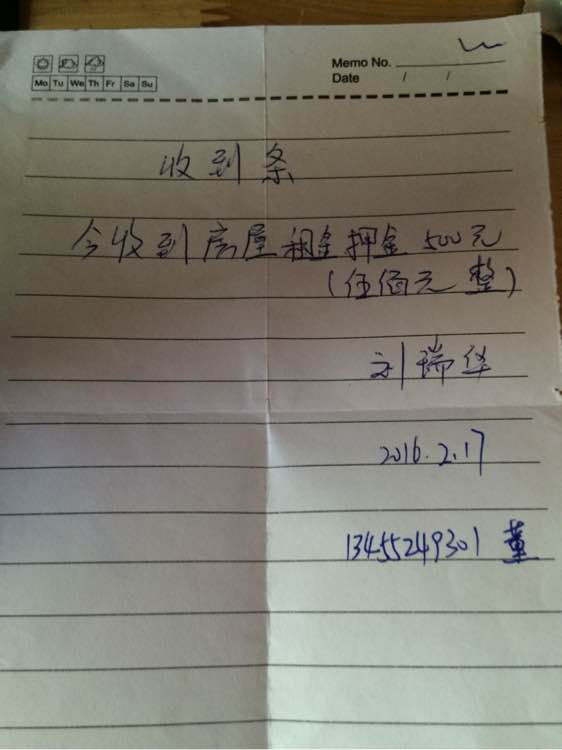 Memo No.
Mo Tu We Th Fr Sa Su
Date / /
收到条
今收到房屋租金押金500元
(伍佰元整)
刘瑞华
2016.2.17
13455249301 董